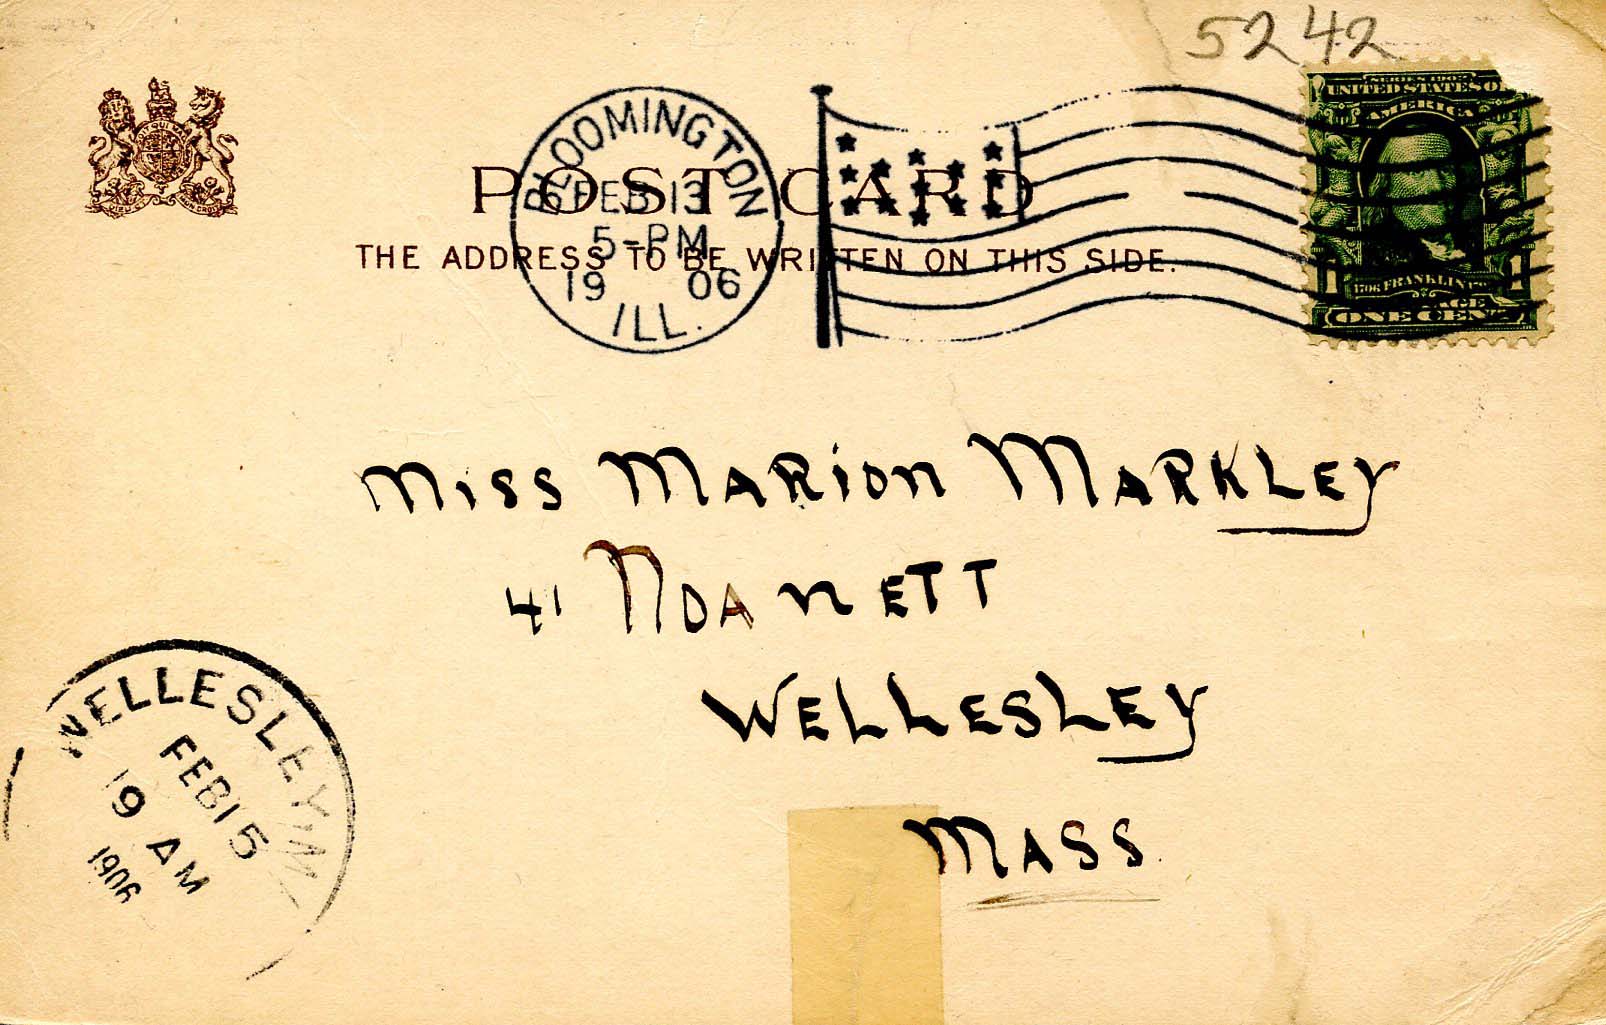 5242
SERIES 1902
UNITED STATES OF
AMERICA
1706 FRANKLIN
ONE CENT
BLOOMINGTON
FEB 13
5-PM
19 06
ILL.
POST CARD
THE ADDRESS TO BE WRITTEN ON THIS SIDE.
Miss Marion Markley
41 Noanett
Wellesley
Mass
WELLESLEY, M
FEB 15
19 AM
1906